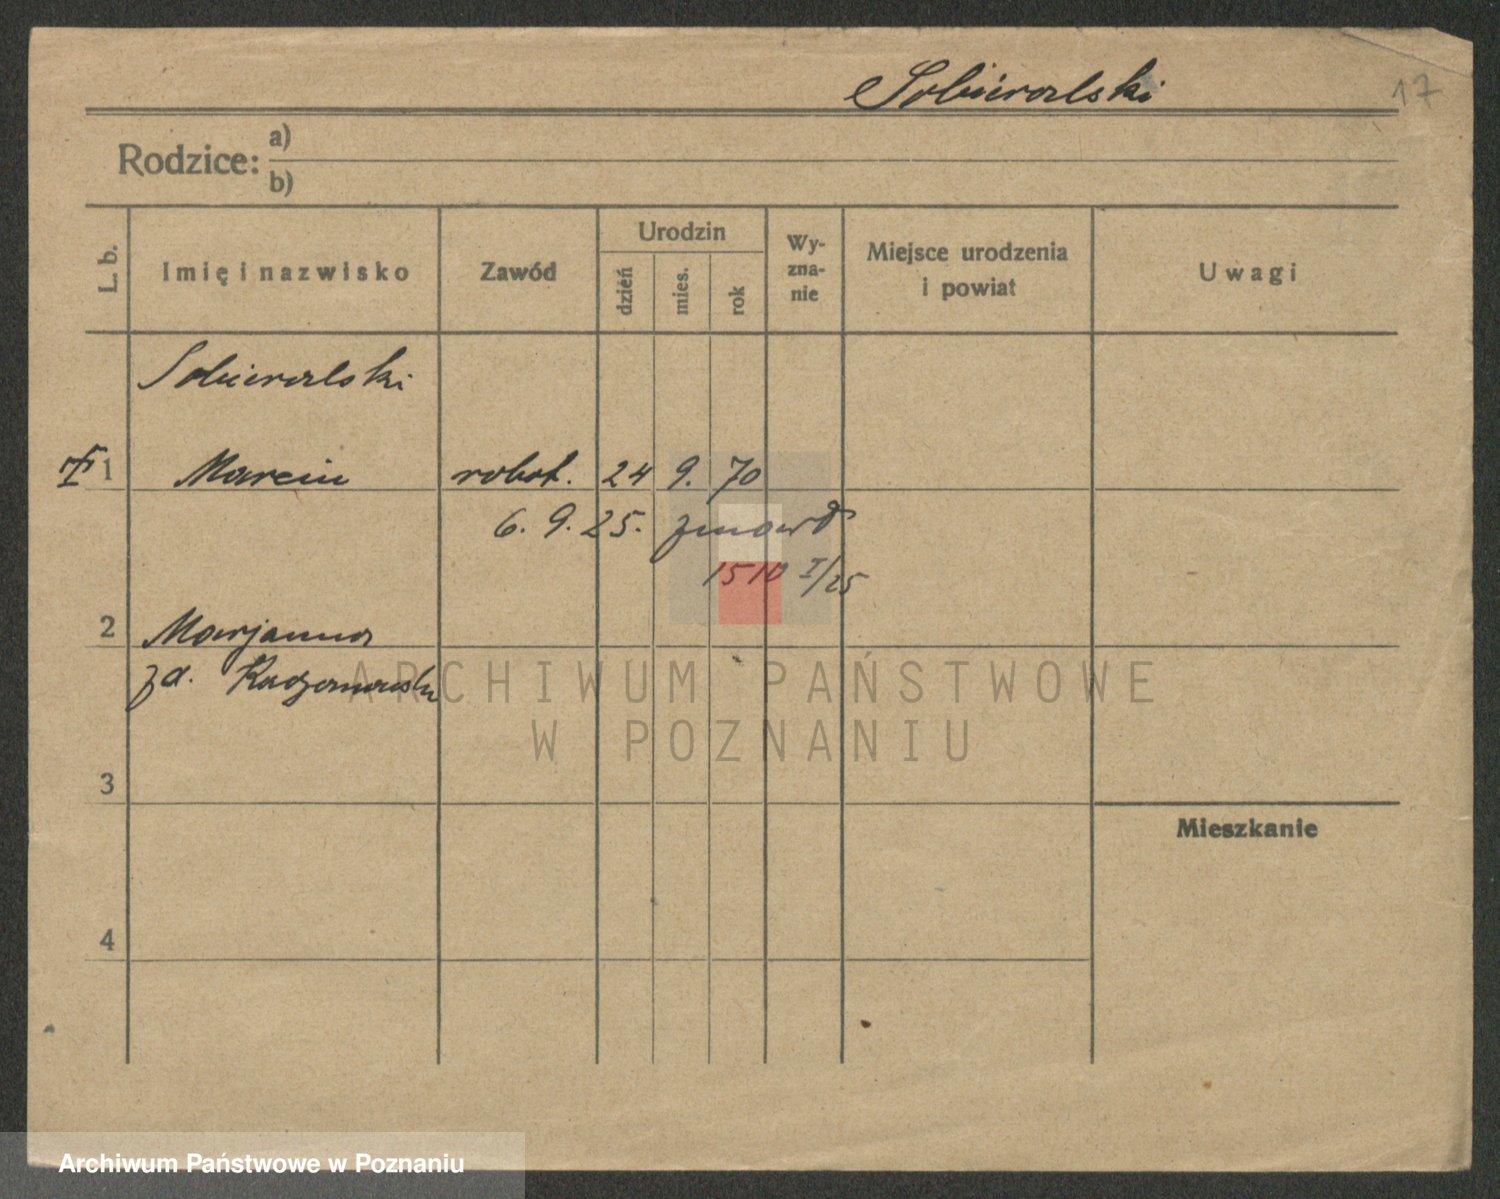 Sobieralski
17
Rodzice:
a)
b)
L. b.
Imię i nazwisko
Zawód
Urodzin
dzień
mies.
rok
Wy-
zna-
nie
Miejsce urodzenia
i powiat
Uwagi
Sobieralski
1 Marcin robot. 24 9. 70
6. 9. 25. zmarł
1510 I/25
2 Marjanna
zd.
ARCHIWUM PAŃSTWOWE
W POZNANIU
3
Mieszkanie
4
Archiwum Państwowe w Poznaniu